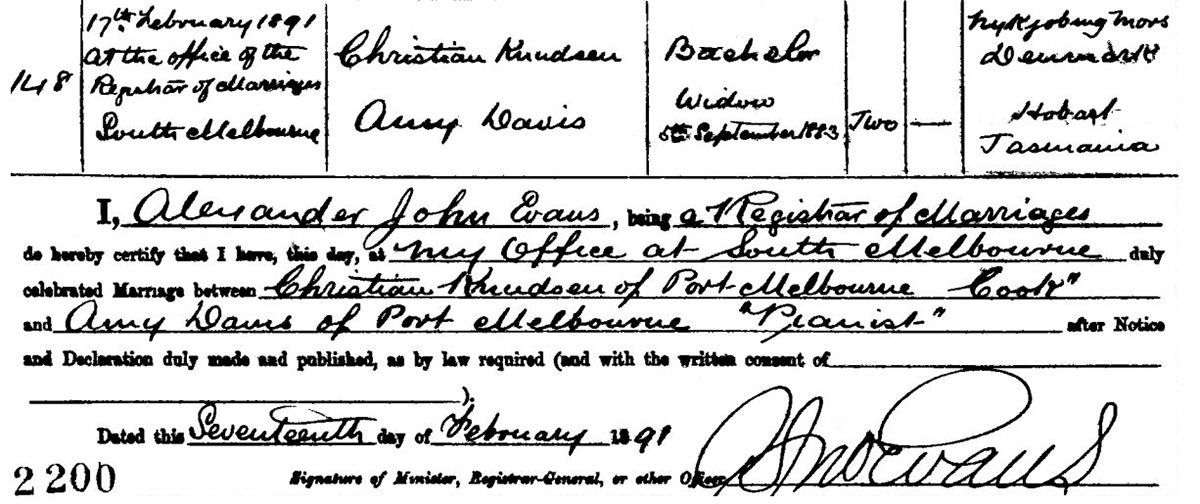 148
17th February 1891
at the office of the
Registrar of Marriages
South Melbourne
Christian Knudsen
Amy Davis
Bachelor
Widow
5th September 1883
Two
—
Nykjobing Mors
Denmark
Hobart
Tasmania
I, Alexander John Evans, being a Registrar of Marriages
do hereby certify that I have, this day, at my Office at South Melbourne duly
celebrated Marriage between Christian Knudsen of Port Melbourne Cook"
and Amy Davis of Port Melbourne "Pianist" after Notice
and Declaration duly made and published, as by law required (and with the written consent of
).
Dated this Seventeenth day of February 1891
2200 Signature of Minister, Registrar-General, or other Officer
Evans